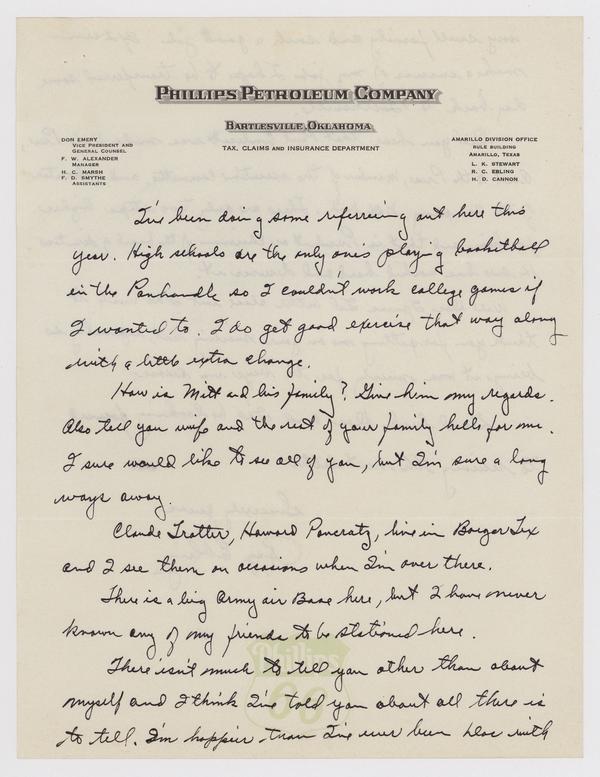 PHILLIPS PETROLEUM COMPANY
BARTLESVILLE, OKLAHOMA
TAX, CLAIMS AND INSURANCE DEPARTMENT
DON EMERY
VICE PRESIDENT AND
GENERAL COUNSEL
F. W. ALEXANDER
MANAGER
H. C. MARSH
F. D. SMYTHE
ASSISTANTS
AMARILLO DIVISION OFFICE
RULE BUILDING
AMARILLO, TEXAS
L. K. STEWART
R. C. EBLING
H. D. CANNON
I've been doing some refereeing out here this
year. High schools are the only one's playing basketball
in the Panhandle so I couldn't work college games if
I wanted to. I do get good exercise that way along
with a little extra change.
How is Mitt and his family? Give him my regards.
Also tell you wife and the rest of your family hello for me.
I sure would like to see all of you, but I'm sure a long
ways away.
Claude Trotter, Howard Pancratz, live in Borger Tex
and I see them on occasions when I'm over there.
There is a big Army air Base here, but I have never
known any of my friends to be stationed here.
There isn't much to tell you other than about
myself and I think I've told you about all there is
to tell. I'm happier than I've ever been with
Phillips
66